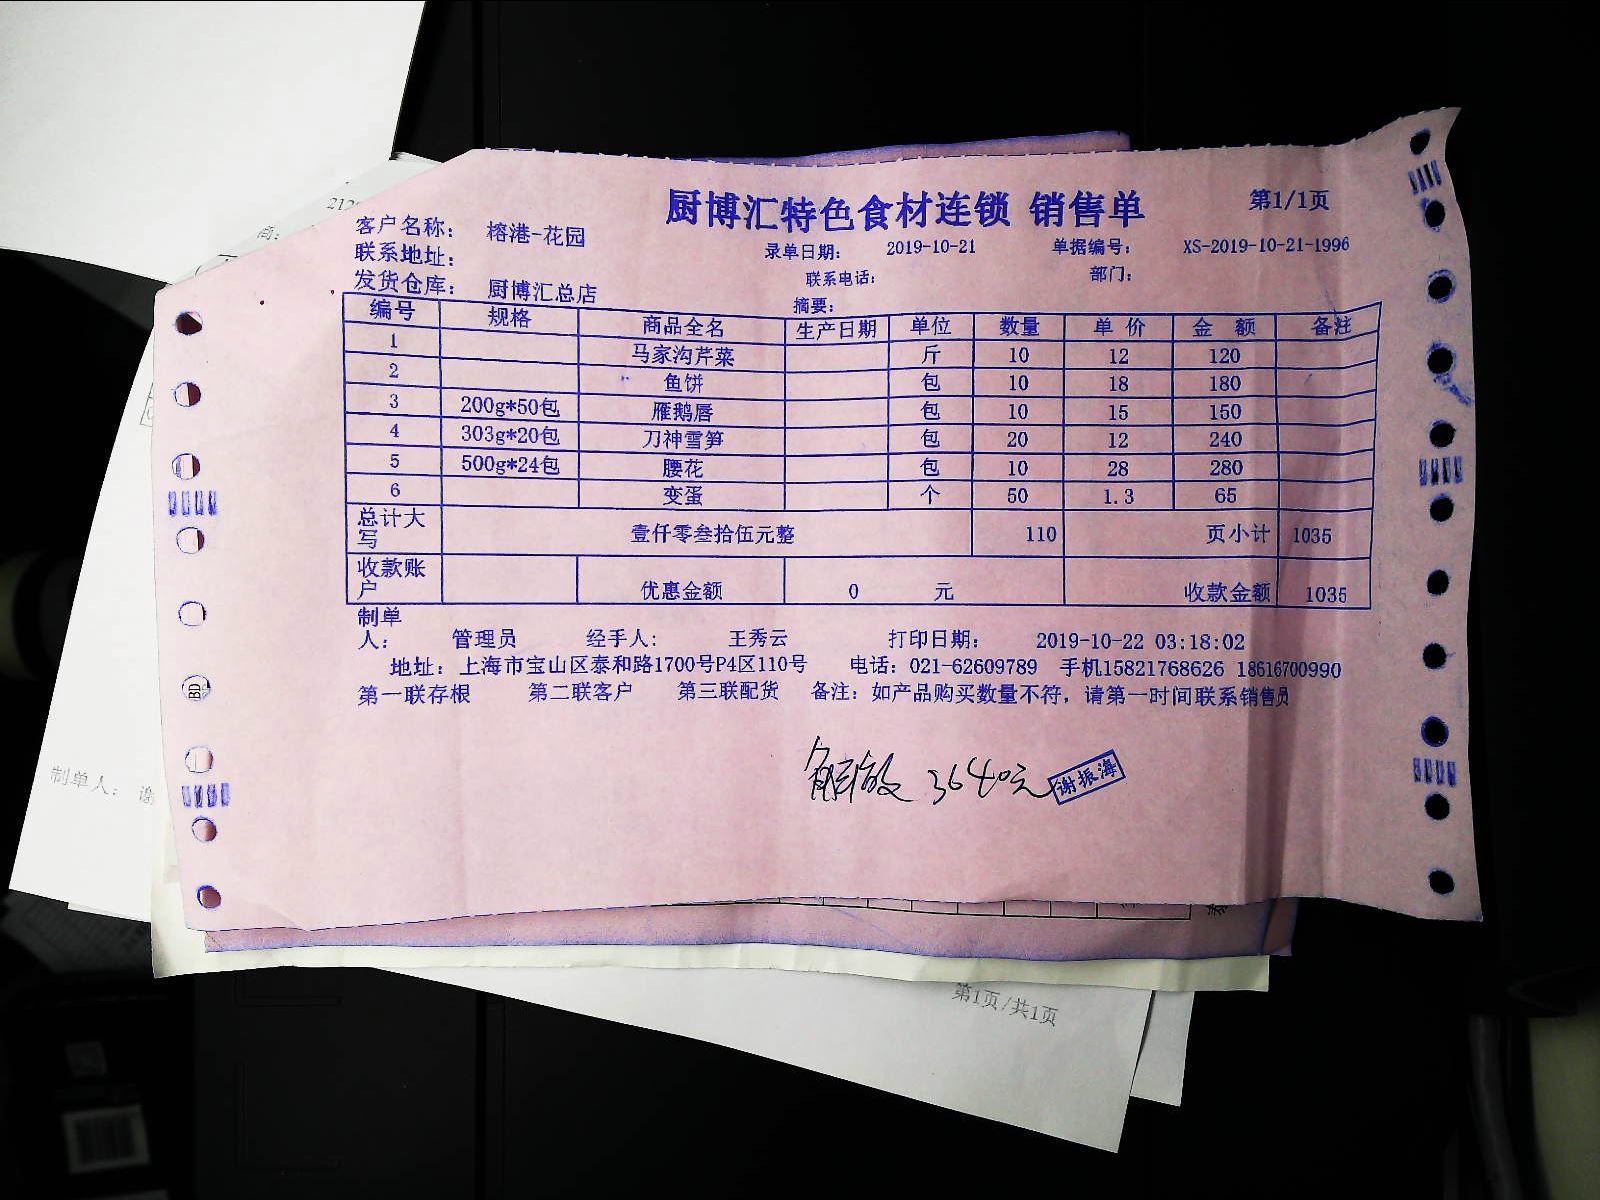 厨博汇特色食材连锁 销售单 第1/1页
客户名称： 榕港-花园 录单日期： 2019-10-21 单据编号： XS-2019-10-21-1996
联系地址： 联系电话： 部门：
发货仓库： 厨博汇总店 摘要：
编号 规格 商品全名 生产日期 单位 数量 单 价 金 额 备注
1 马家沟芹菜 斤 10 12 120
2 鱼饼 包 10 18 180
3 200g*50包 雁鹅唇 包 10 15 150
4 303g*20包 刀神雪笋 包 20 12 240
5 500g*24包 腰花 包 10 28 280
6 变蛋 个 50 1.3 65
总计大写 壹仟零叁拾伍元整 110 页小计 1035
收款账户 优惠金额 0 元 收款金额 1035
制单人： 管理员 经手人： 王秀云 打印日期： 2019-10-22 03:18:02
地址：上海市宝山区泰和路1700号P4区110号 电话：021-62609789 手机15821768626 18616700990
第一联存根 第二联客户 第三联配货 备注：如产品购买数量不符，请第一时间联系销售员
3640元 谢振海
212
商：
BD
制单人： 谢
第1页/共1页